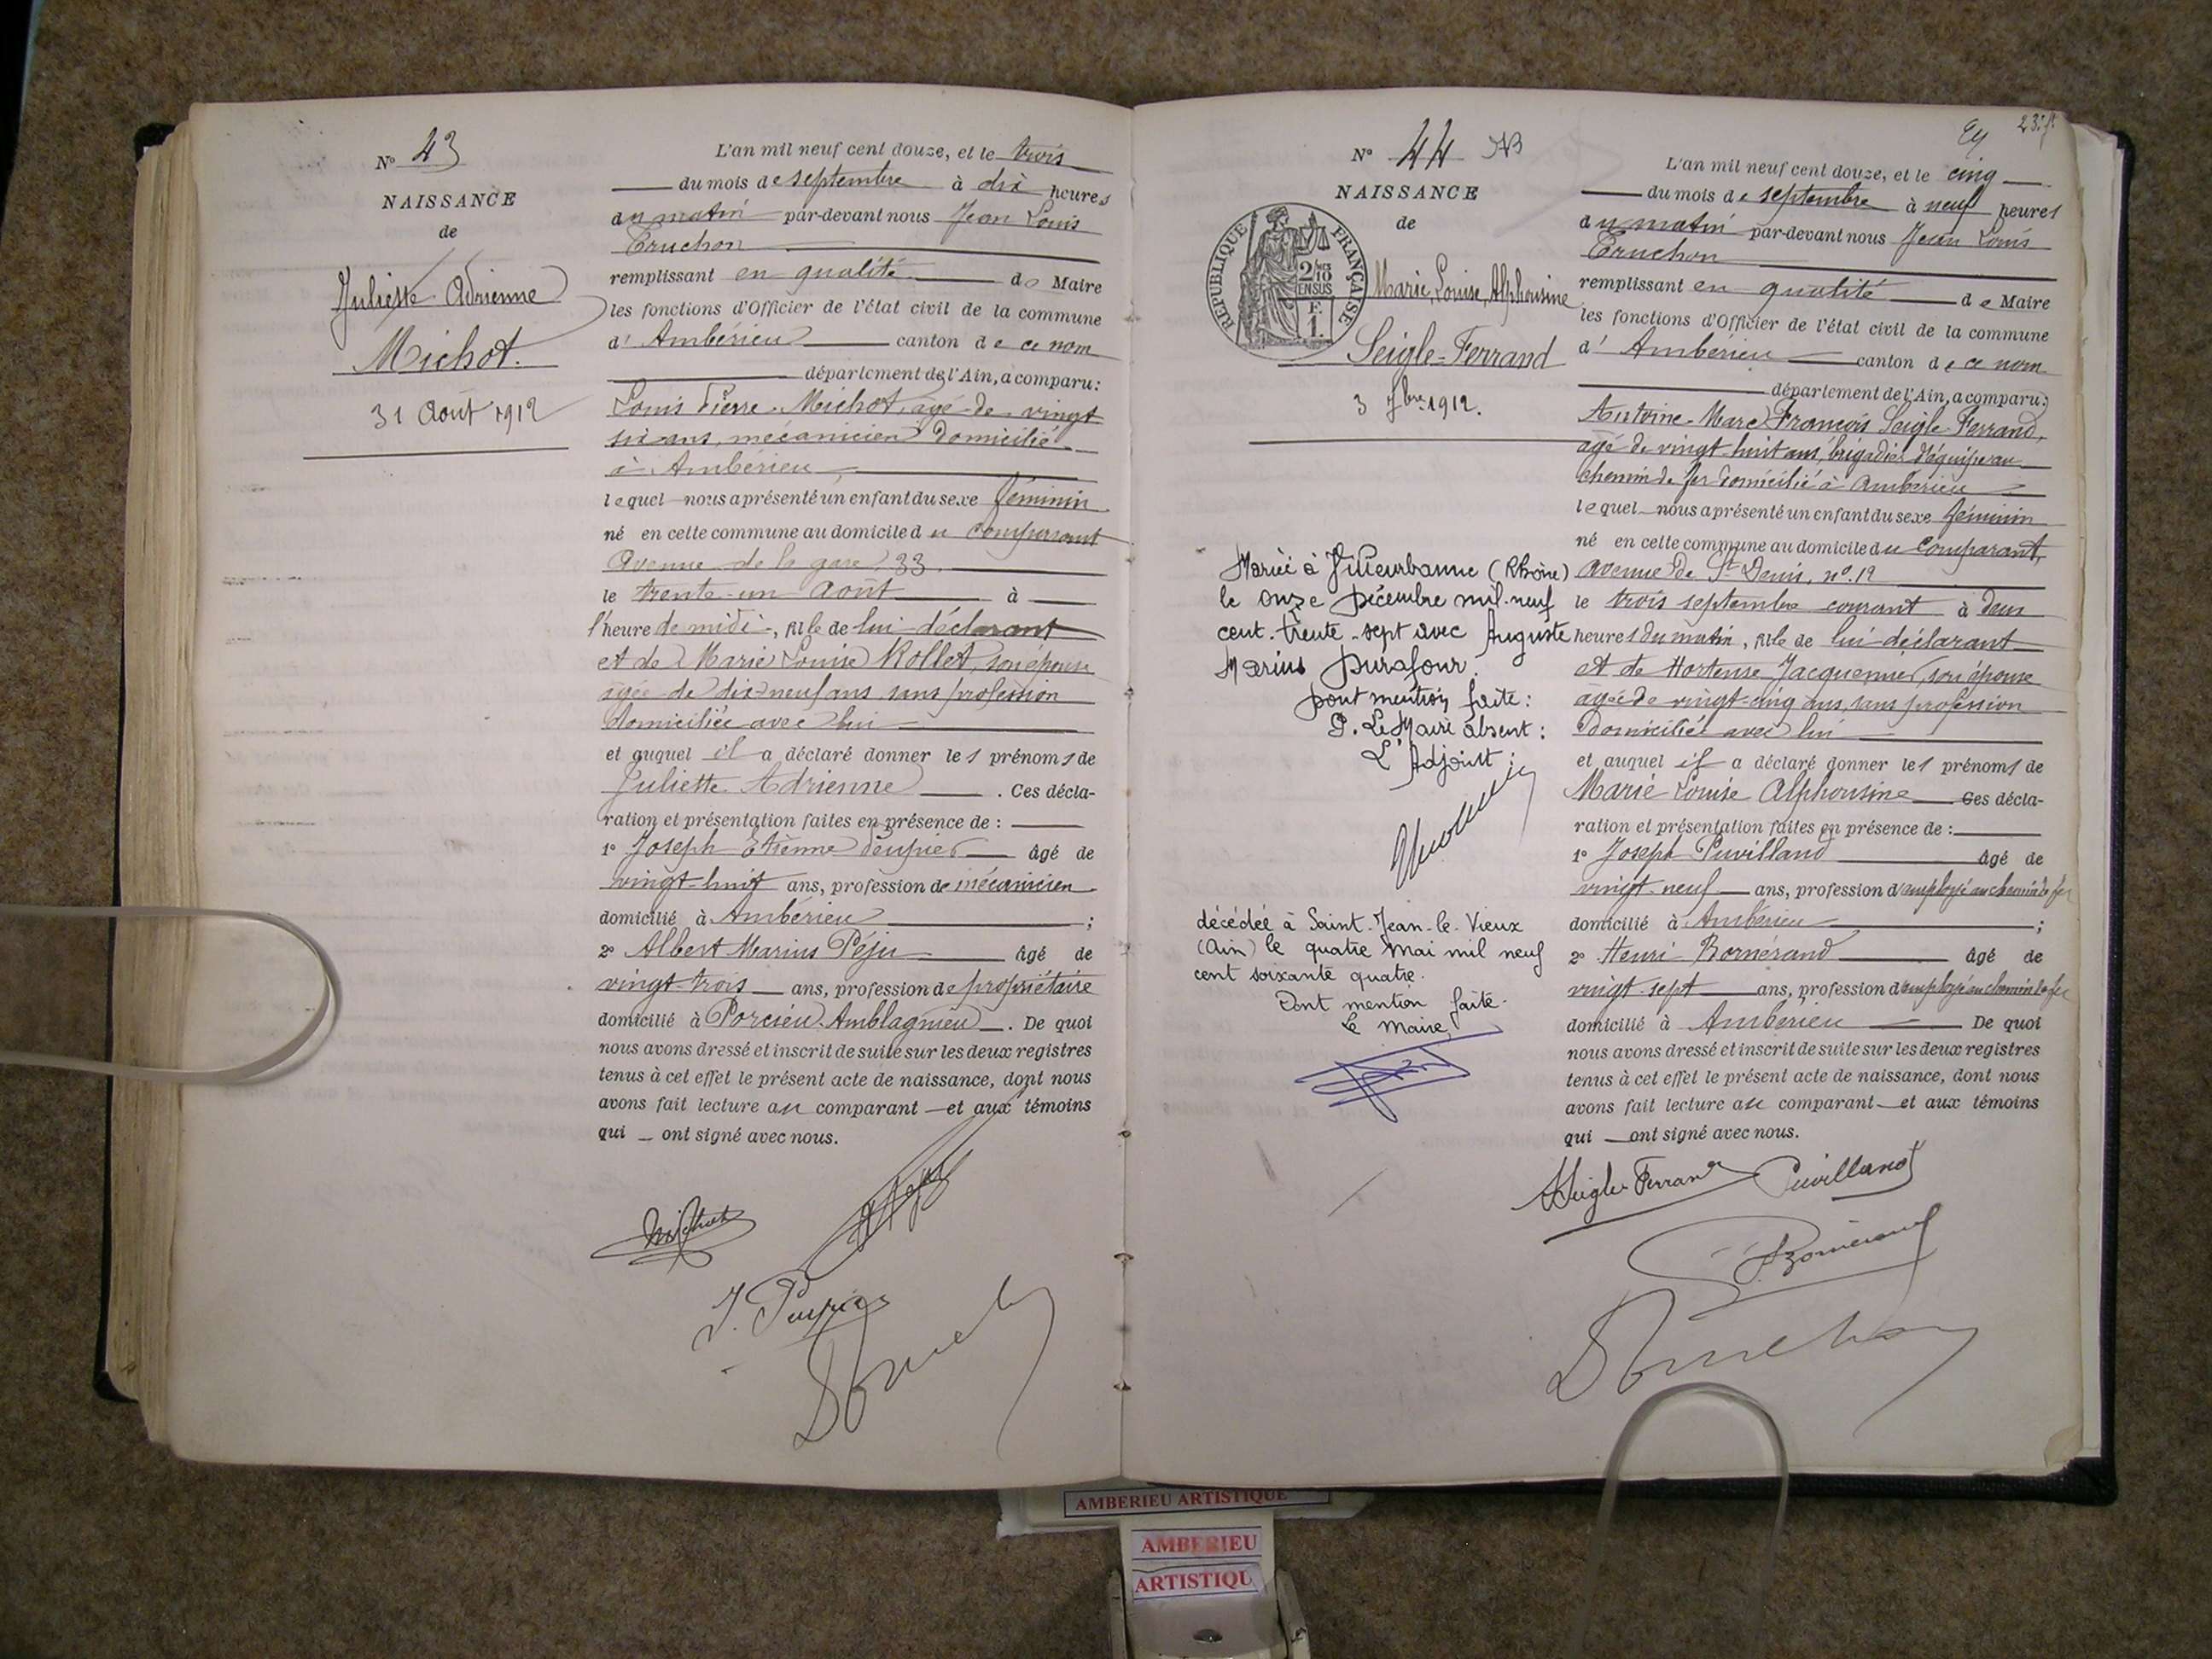 N° 43
NAISSANCE
de
Juliette Adrienne
Michot.
31 Août 1912
L'an mil neuf cent douze, et le trois
du mois de septembre à dix heures
du matin par-devant nous Jean Louis
Truchon
remplissant en qualité de Maire
les fonctions d'Officier de l'état civil de la commune
d' Ambérieu canton de ce nom
département de l'Ain, a comparu:
Louis Pierre Michot, âgé de vingt
six ans, mécanicien domicilié
à Ambérieu
lequel nous a présenté un enfant du sexe féminin
né en cette commune au domicile du comparant
Avenue de la gare 33
le trente-un Août à
l'heure de midi, fille de lui déclarant
et de Marie Louise Rollet, son épouse
âgée de dix-neuf ans sans profession
domiciliée avec lui
et auquel il a déclaré donner les prénoms de
Juliette Adrienne . Ces décla-
ration et présentation faites en présence de :
1° Joseph Etienne âgé de
vingt-huit ans, profession de mécanicien
domicilié à Ambérieu ;
2° Albert Marius Péju âgé de
vingt-trois ans, profession de propriétaire
domicilié à Porcieu-Amblagnieu . De quoi
nous avons dressé et inscrit de suite sur les deux registres
tenus à cet effet le présent acte de naissance, dont nous
avons fait lecture au comparant et aux témoins
qui ont signé avec nous.
Michot
N° 44
NAISSANCE
de
RÉPUBLIQUE FRANÇAISE
Marie, Louise, Alphonsine
Seigle-Ferrand
3 7bre 1912.
Mariée à Villeurbanne (Rhône)
le onze Décembre mil-neuf
cent-trente-sept avec Auguste
Marius Durafour.
Dont mention faite:
P. Le Maire absent:
L'Adjoint:
décédée à Saint-Jean-le-Vieux
(Ain) le quatre mai mil neuf
cent soixante quatre.
Dont mention faite-
Le Maire
L'an mil neuf cent douze, et le cinq
du mois de septembre à neuf heures
du matin par-devant nous Jean Louis
Truchon
remplissant en qualité de Maire
les fonctions d'Officier de l'état civil de la commune
d' Ambérieu canton de ce nom
département de l'Ain, a comparu:
Antoine-Marc François Seigle-Ferrand,
âgé de vingt-huit ans, brigadier d'équipe au
chemin de fer domicilié à Ambérieu
lequel nous a présenté un enfant du sexe féminin
né en cette commune au domicile du comparant,
avenue de St Denis, n°. 12
le trois septembre courant à deux
heures du matin, fille de lui déclarant
et de Hortense Jacquemier, son épouse
âgée de vingt-cinq ans, sans profession
Domiciliée avec lui
et auquel il a déclaré donner les prénoms de
Marie Louise Alphonsine Ces décla-
ration et présentation faites en présence de :
1° Joseph Puvilland âgé de
vingt-neuf ans, profession d'employé au chemin de fer
domicilié à Ambérieu ;
2° Henri Bornérand âgé de
vingt-sept ans, profession d'employé au chemin de fer
domicilié à Ambérieu De quoi
nous avons dressé et inscrit de suite sur les deux registres
tenus à cet effet le présent acte de naissance, dont nous
avons fait lecture au comparant et aux témoins
qui ont signé avec nous.
Seigle-Ferrand Puvilland
Bornérand
Truchon
AMBERIEU ARTISTIQUE
AMBERIEU
ARTISTIQU